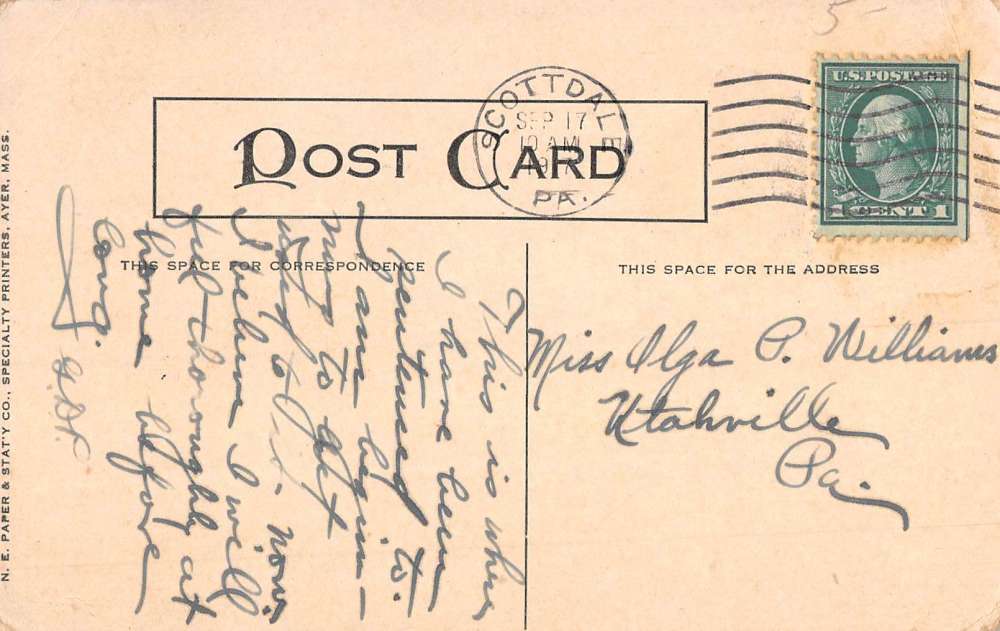 5-
POST CARD
SCOTTDALE
SEP 17
10 AM
PA.
U.S. POSTAGE
1 CENT 1
THIS SPACE FOR CORRESPONDENCE
THIS SPACE FOR THE ADDRESS
This is where
I have been
sentenced to.
I am begin-
ning to get
used to it. now.
I believe I will
feel thoroughly at
home before
long.
Miss Olga P. Williams
Utahville
Pa.
N. E. PAPER & STAT'Y CO., SPECIALTY PRINTERS, AYER, MASS.